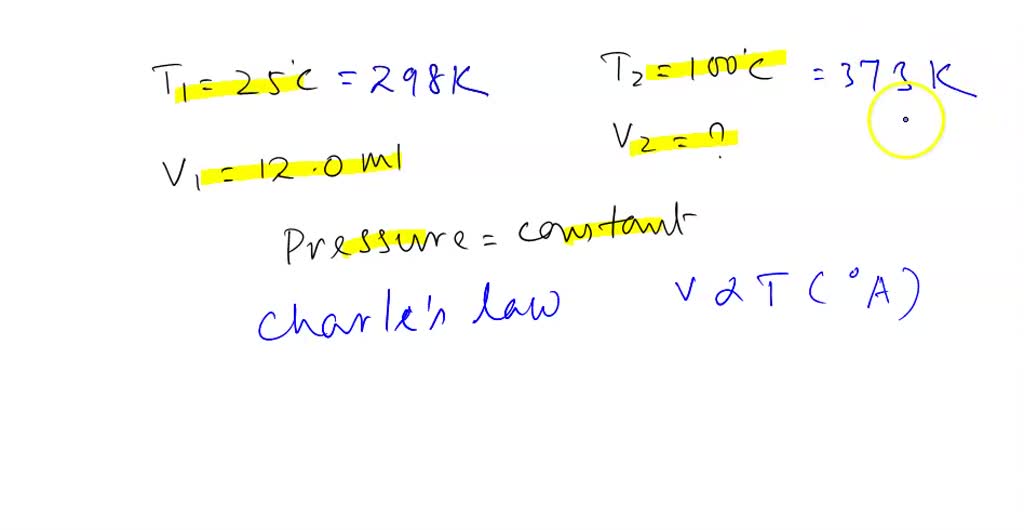 T₁ = 25°C = 298K
T₂ = 100°C = 373K
V₁ = 12.0 ml
V₂ = ?
Pressure = constant
Charle's law
V α T (°A)